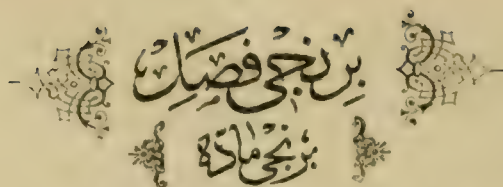 برنجی فصل
برنجی ماده